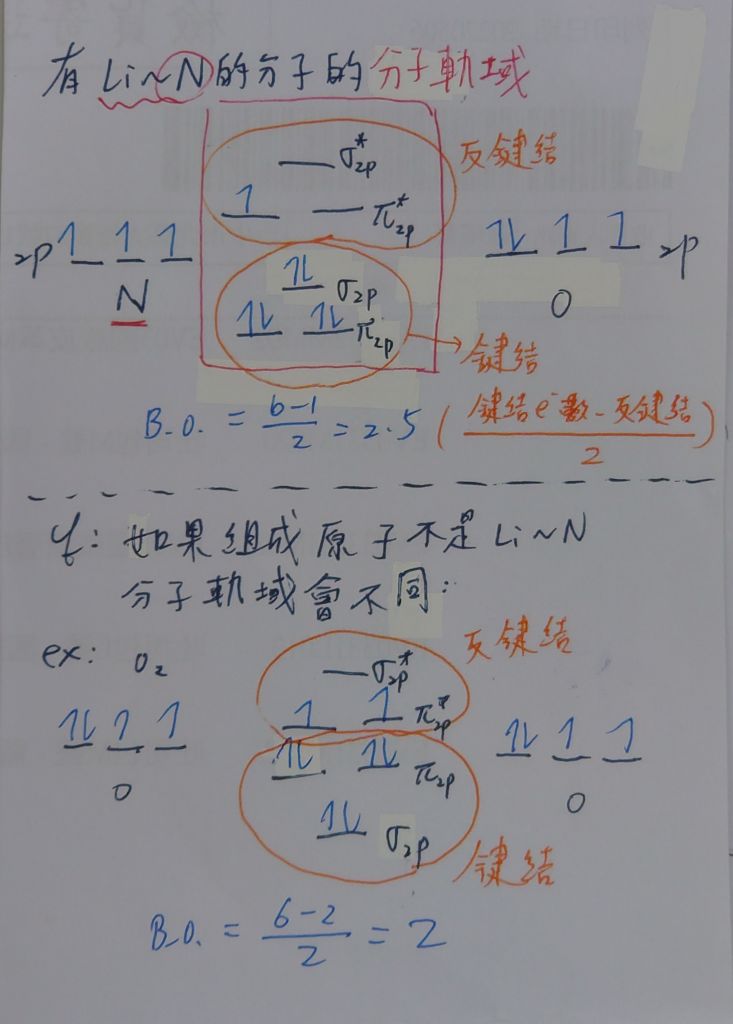 有Li~N的分子的分子軌域
σ*2p 反鍵結
1 π*2p
2p 1 1 1 1L 1 1 2p
N 1L σ2p O
1L 1L π2p → 鍵結
B.O. = 6-1/2 = 2.5 (鍵結e⁻數-反鍵結/2)
如果組成原子不是Li~N
分子軌域會不同:
ex: O2 反鍵結
σ2p*
1 1 π2p*
1L 1 1 1L 1L π2p 1L 1 1
O 1L σ2p O
鍵結
B.O. = 6-2/2 = 2